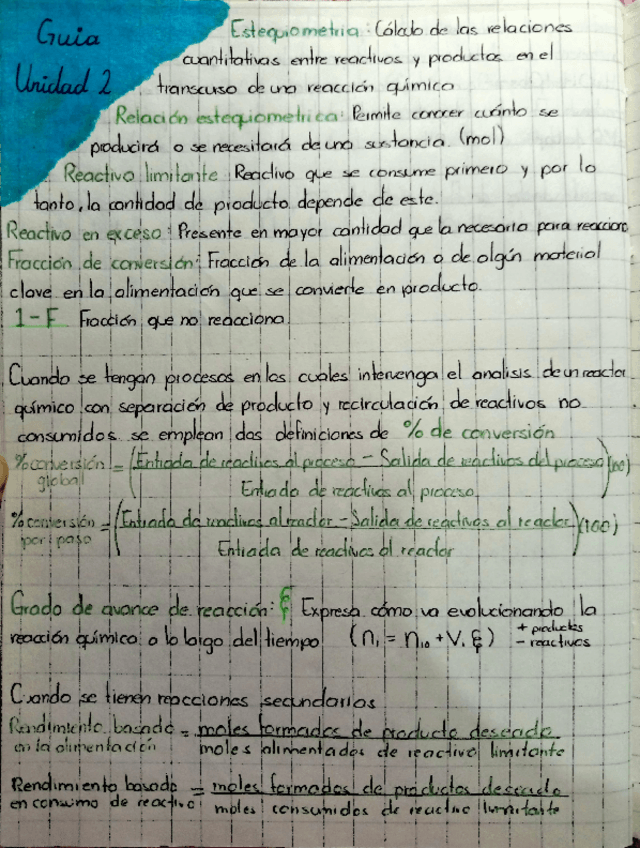 Guia
Unidad 2
Estequiometria: Cálculo de las relaciones
cuantitativas entre reactivos y productos en el
transcurso de una reacción química
Relación estequiometrica: Permite conocer cuánto se
producirá o se necesitará de una sustancia. (mol)
Reactivo limitante: Reactivo que se consume primero y por lo
tanto, la cantidad de producto depende de este.
Reactivo en exceso: Presente en mayor cantidad que la necesaria para reaccionar
Fracción de conversión: Fracción de la alimentación o de algún material
clave en la alimentación que se convierte en producto.
1-F Fracción que no reacciona
Cuando se tengan procesos en los cuales intervenga el analisis de un reactor
químico con separación de producto y recirculación de reactivos no
consumidos se emplean dos definiciones de % de conversión
%conversión global = (Entrada de reactivos al proceso - Salida de reactivos del proceso)(100)
Entrada de reactivos al proceso
%conversión por paso = (Entrada de reactivos al reactor - Salida de reactivos al reactor)(100)
Entrada de reactivos al reactor
Grado de avance de reacción: ξ Expresa cómo va evolucionando la
reacción química a lo largo del tiempo (n₁ = n₁₀ + V₁ ξ) + productos
- reactivos
Cuando se tienen reacciones secundarias
Rendimiento basado = moles formados de producto deseado
en la alimentación moles alimentados de reactivo limitante
Rendimiento basado = moles formados de productos deseado
en consumo de reactivo moles consumidos de reactivo limitante